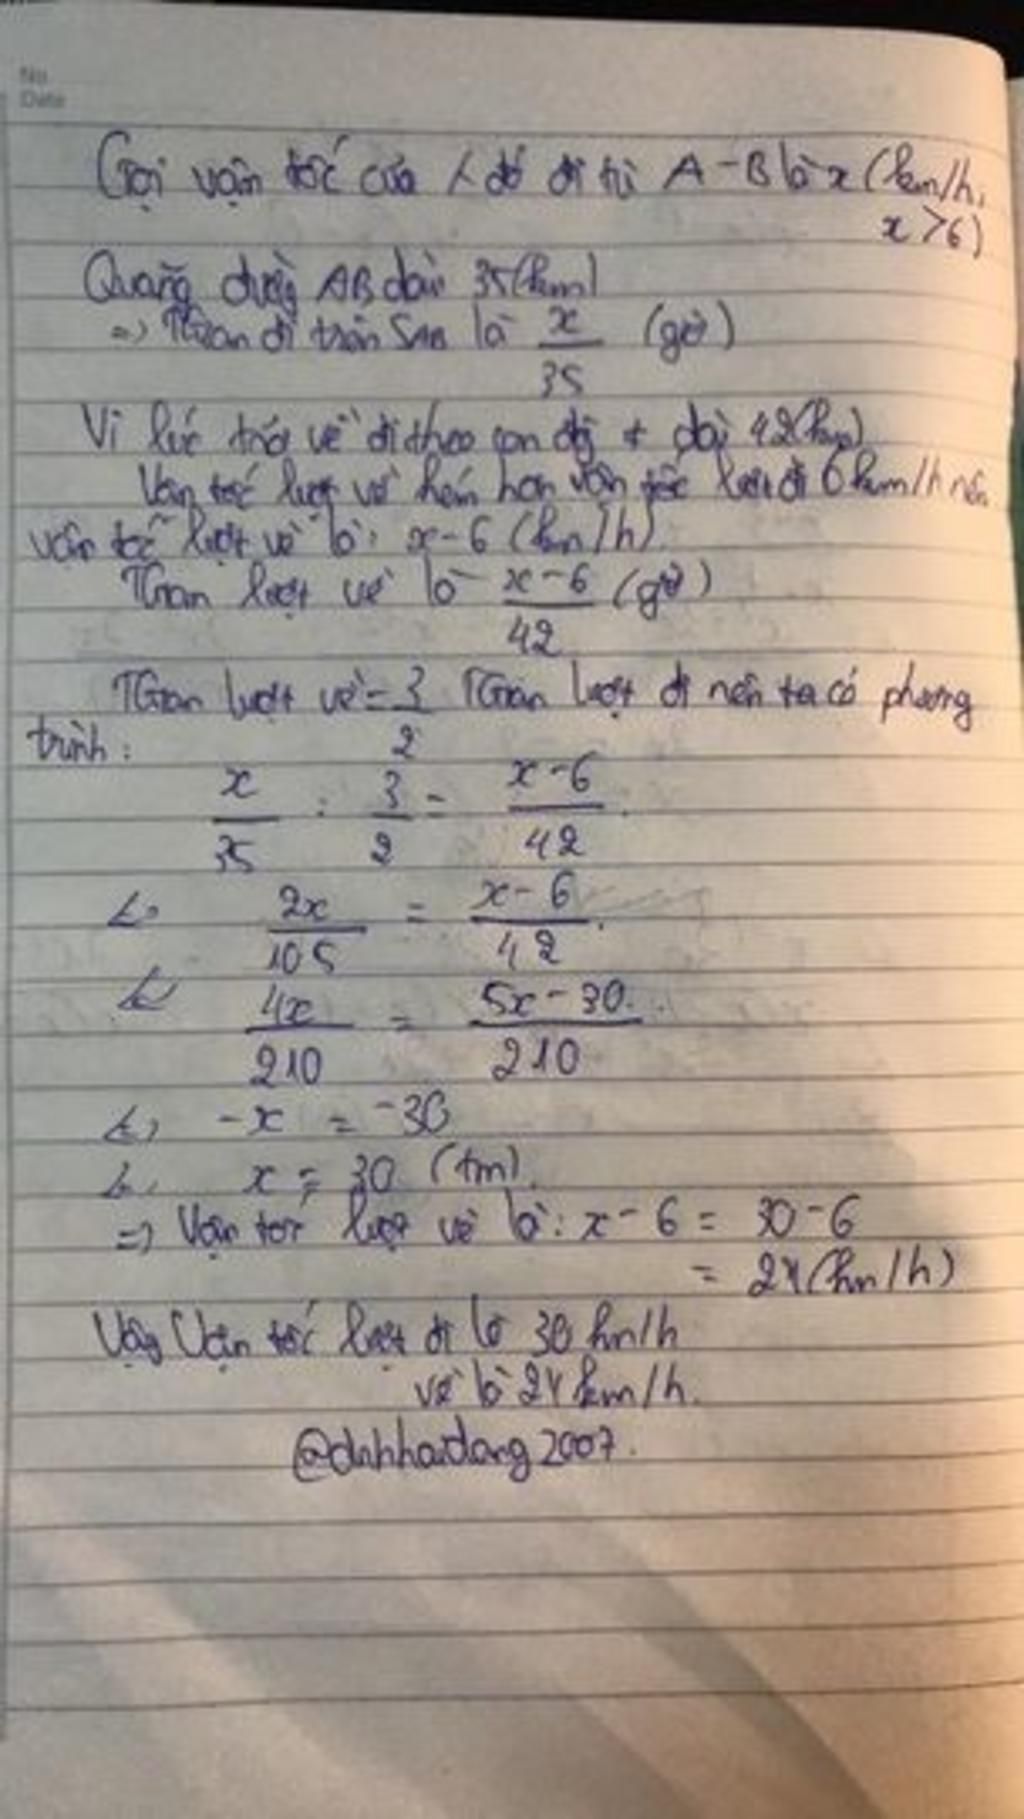 No
Date
Gọi vận tốc của đó đi từ A-B là x (km/h,
x > 6)
Quãng đường AB dài 35(km)
=> TGian đi trên SAB là x/35 (giờ)
Vì lúc trở về đi theo con dài 42(km)
Vận tốc lượt về kém hơn vận tốc lượt đi 6km/h nên
vận tốc lượt về là: x-6 (km/h)
TGian lượt về là x-6/42 (giờ)
TGian lượt về = 3/2 TGian lượt đi nên ta có phương
trình:
x/35 : 3/2 = x-6/42
<=> 2x/105 = x-6/42
<=> 4x/210 = 5x-30/210
<=> -x = -30
<=> x = 30 (tm)
=> Vận tốc lượt về là: x-6 = 30-6
= 24(km/h)
Vậy Vận tốc lượt đi là 30 km/h
về là 24km/h.
@dnhhaidang2007.